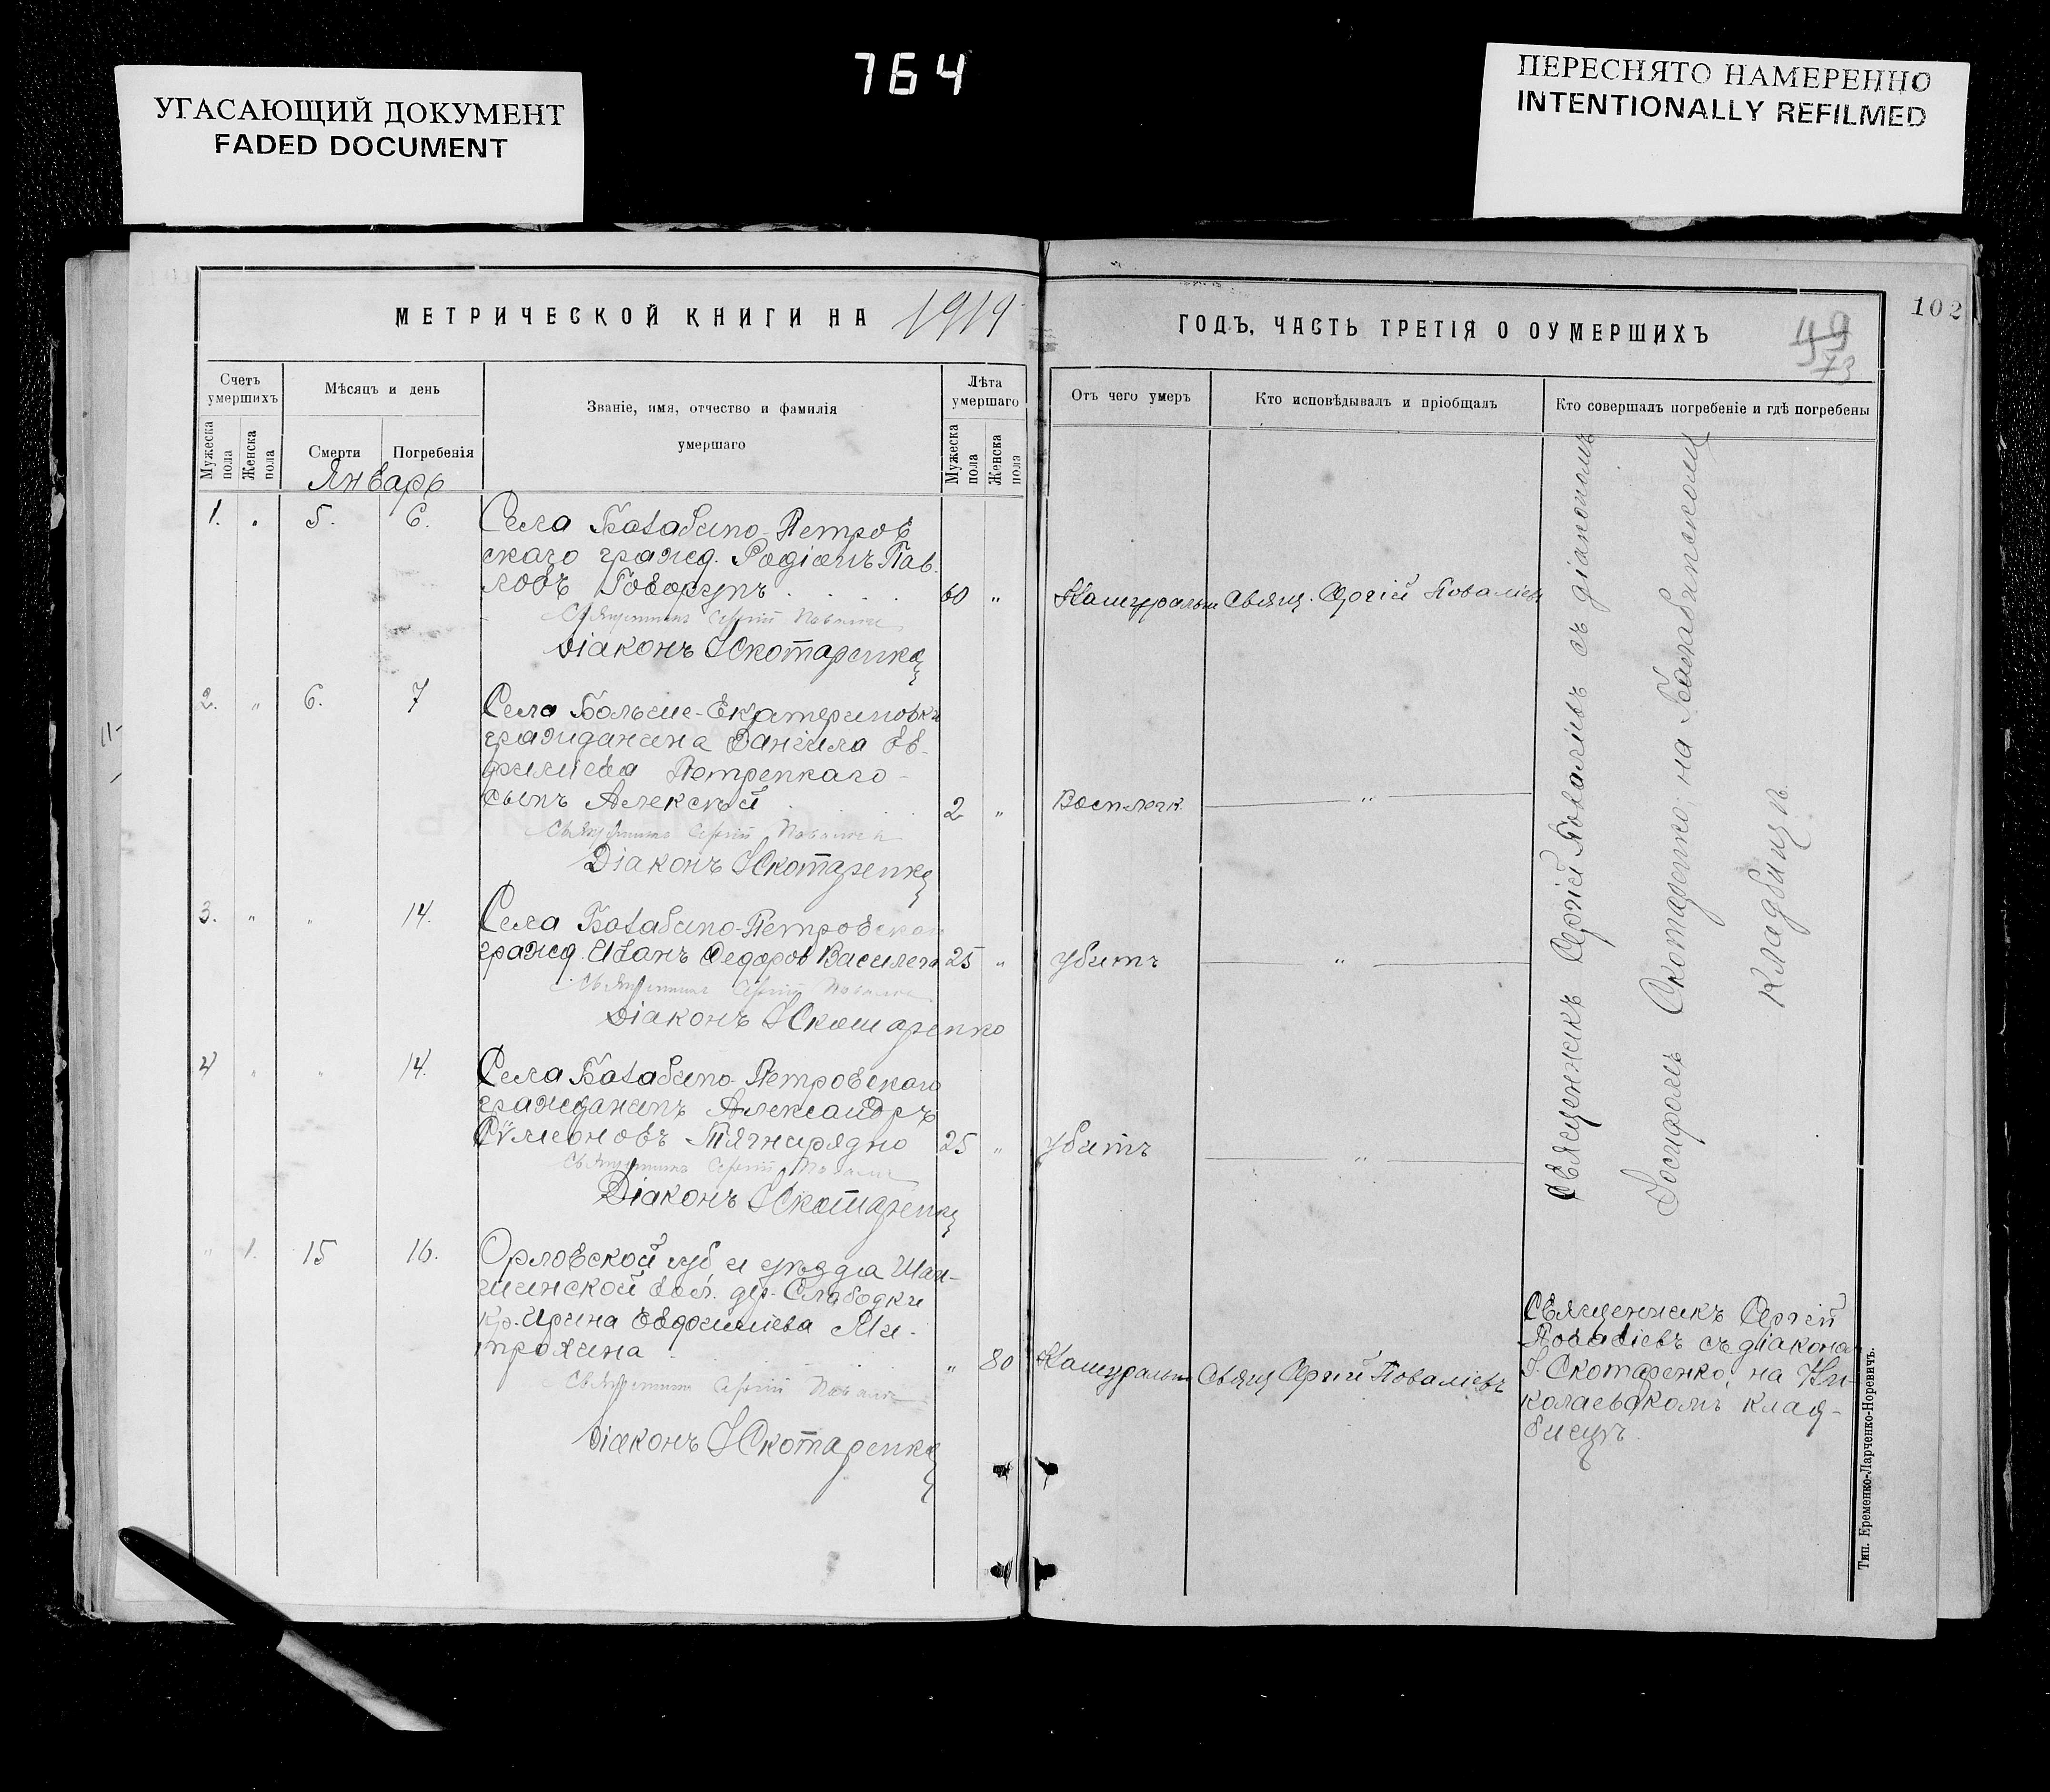 764
УГАСАЮЩИЙ ДОКУМЕНТ
FADED DOCUMENT
ПЕРЕСНЯТО НАМЕРЕННО
INTENTIONALLY REFILMED
МЕТРИЧЕСКОЙ КНИГИ НА 1919
ГОДЪ, ЧАСТЬ ТРЕТІЯ О ОУМЕРШИХЪ
102
49
73
Счетъ умершихъ
Мужеска пола
Женска пола
Мѣсяцъ и день
Смерти
Погребенія
Званіе, имя, отчество и фамилія
умершаго
Лѣта умершаго
Мужеска пола
Женска пола
Отъ чего умеръ
Кто исповѣдывалъ и пріобщалъ
Кто совершалъ погребеніе и гдѣ погребены
Январь
1. 5. 6. Села Балабино-Петров
скаго гражд. Родіонъ Пав-
ловъ Говорунъ 60 „ Натуральн Свящ. Сергій Поваліевъ
Священникъ Сергій
Діаконъ І Скотаренко
2. „ 6. 7 Села Больше-Екатериновки
гражданина Даніила Ев-
фиміева Петренкаго
сынъ Алексѣй 2 „ Восп. легк. „
Священникъ Сергій
Діаконъ І Скотаренко
3. „ „ 14. Села Балабино-Петровскаго
гражд. Иванъ Федоров 25 „ убитъ „
Священникъ Сергій
Діаконъ І Скотаренко
4 „ „ 14. Села Балабино-Петровскаго
гражданинъ Александръ
Сѵмеоновъ Тягнирядно 25 „ убитъ „
Священникъ Сергій
Діаконъ І Скотаренко
„ 1. 15 16. Орловской губ и уѣзда
вол. дер. Слабодки
кр. Ирина Евфиміева Ми-
трохина „ 80 Натуральн Свящ Сергій Поваліевъ
Священникъ Сергій
Діаконъ І Скотаренко
Священникъ Сергій Поваліевъ съ діакономъ
Іосифомъ Скотаренко, на Балабинскомъ
кладбищѣ.
Священникъ Сергій
Поваліевъ съ діакона
І. Скотаренко, на Ни-
колаевскомъ клад-
бищѣ.
Тип. Еременко-Ларченко-Норевичъ.